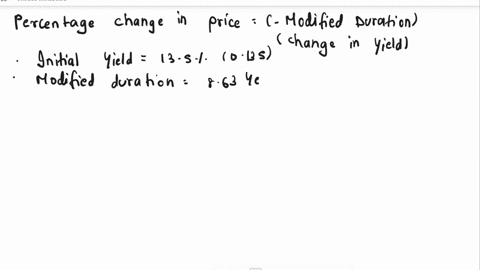 Percentage change in price = (- Modified Duration)
(change in yield)
· Initial Yield = 13.5 %. (0.135)
· Modified duration = 8.63 Ye